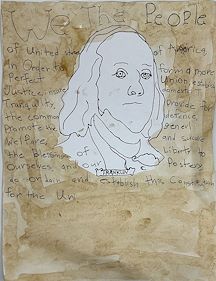 We The People
of United states of America,
In Order to form a more
Perfect Union establish
Justice, more domestic
Tranquility, Provide for
the common defence,
Promote the generl
Welfare, and
the blessings of Liberty to
Ourselves, and our Postery
FRANKLIN
do ordain and establish this Constitution
for the Uni